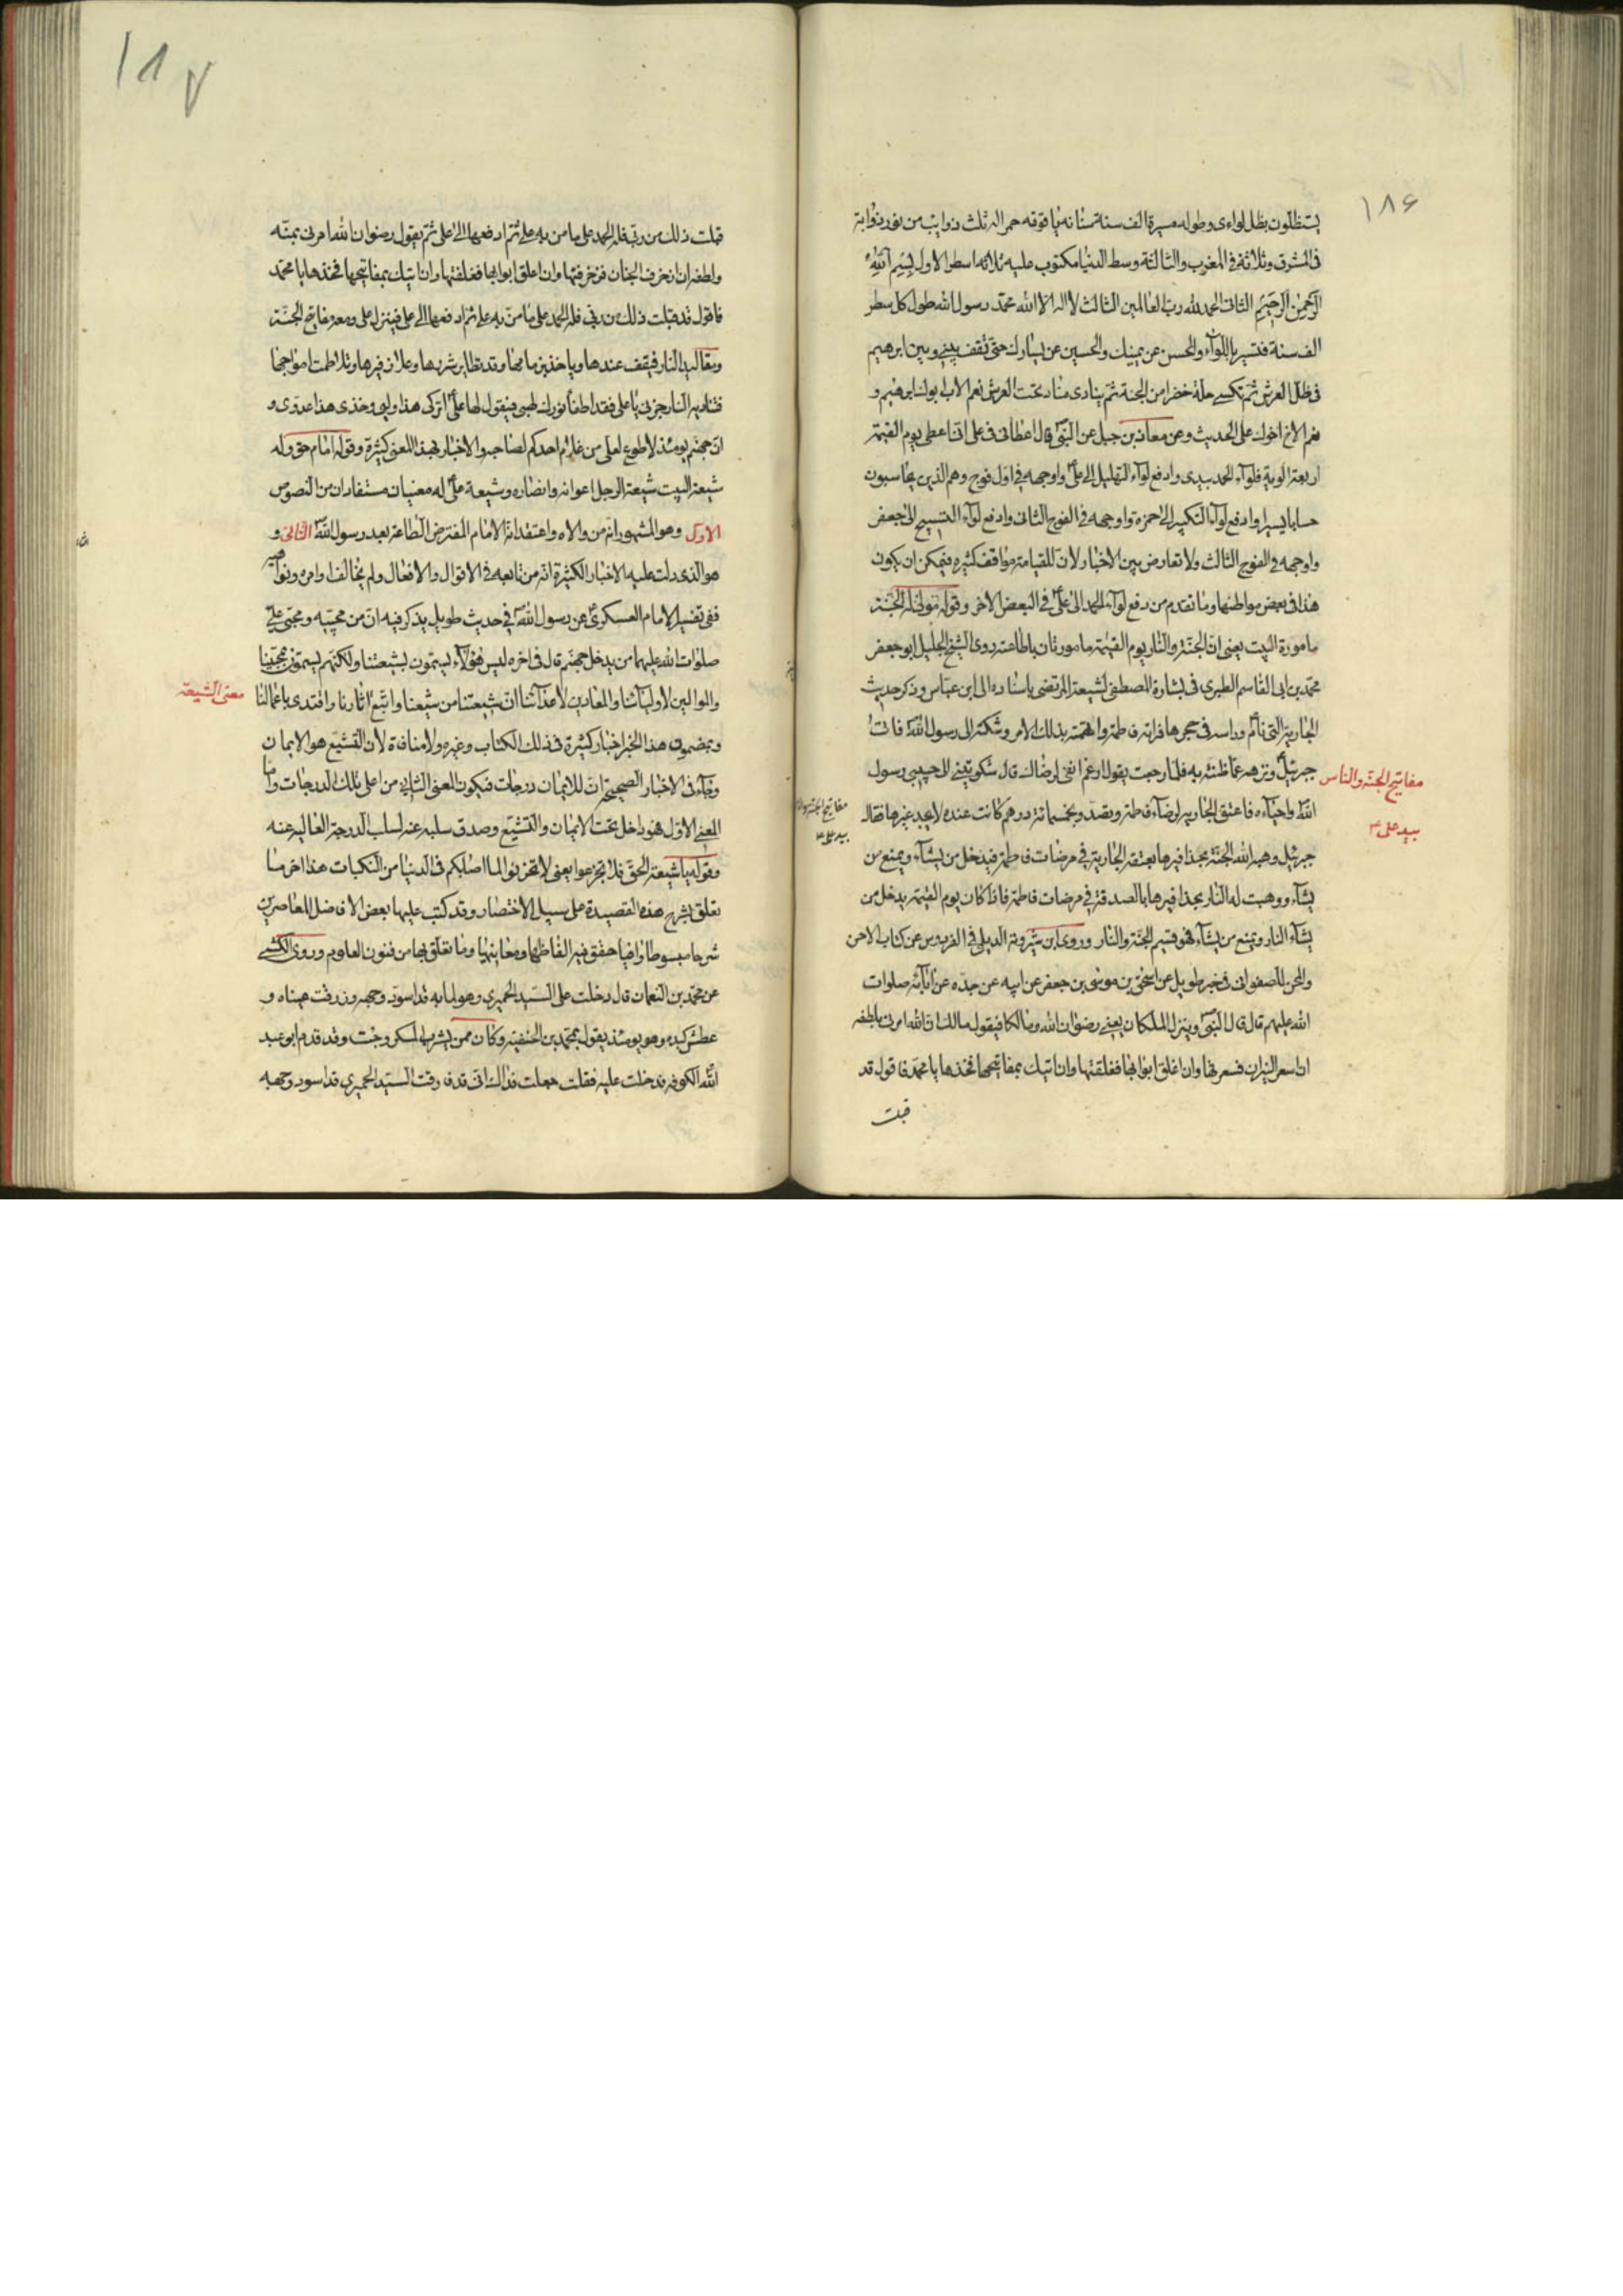 ١٨۶
يستظلون بظل لواءى وطوله مسيرة الف سنة سنانه ياقوته حمراله ثلث ذوايب من نور ذوابة
فى المشرق وثلاثة فى المغرب والثالثة وسط الدنيا مكتوب عليه ثلاثه اسطر الاول بسم الله
الرحمن الرحيم الثانى الحمد لله رب العالمين الثالث لا اله الا الله محمد رسول الله طول كل سطر
الف سنة فتسير باللوآء والحسن عن يمينك والحسين عن يسارك حتى تقف بينى وبين ابرهيم
فى ظل العرش ثم تكسى حلة خضرا من الجنة ثم ينادى مناد تحت العرش نعم الاب ابوك ابرهيم و
نعم الاخ اخوك على الحديث وعن معاذ بن جبل عن النبى قال اعطانى فى على انا اعطى يوم القيمة
اربعة الوية فلوآء الحمد بيدى وادفع لوآء التهليل الى على واوجهه فى اول فوج وهم الذين يحاسبون
حسابا يسيرا وادفع لوآء التكبير الى حمزه واوجهه فى الفوج الثانى وادفع لوآء التسبيح الى جعفر
واوجهه فى الفوج الثالث ولا تعارض بين الاخبار لان للقيامة مواقف كثيره فيمكن ان يكون
هذا فى بعض مواطنها وما تقدم من دفع لوآء الحمد الى على فى البعض الاخر وقوله مولى له الجنة
مامورة البيت يعنى ان الجنة والنار يوم القيمة مامورتان باطاعته روى الشيخ الجليل ابو جعفر
محمد بن ابى القاسم الطبرى فى بشارة المصطفى لشيعة المرتضى باسناده الى ابن عباس وذكر حديث
الجارية التى نام وراسه فى حجرها فراته فاطمة واتهمته بذلك الامر وشكته الى رسول الله فاتت
جبرئيل ونزهه عما ظنته به فلما رجعت يقول ارغم انفى لرضاك قال شكوتينى الى حبيبى رسول
الله واحياءه فاعتق الجاريه لرضآء فاطمة وتصدق بخمسمائة درهم كانت عنده لا يجد غيرها فقال
جبرئيل وهبه الله الجنة بحذافيرها بعتقه الجارية فى مرضات فاطمة فيدخل من يشآء ويمنع من
يشآء ووهبت له النار بحذافيرها بالصدقة فى مرضات فاطمة فاذا كان يوم القيمة يدخل من
يشآء النار ويمنع من يشآء فهو قسيم الجنة والنار وروى ابن شيرويه الديلمى فى الفردوس عن كتاب الاحن
والمحن للصفوانى فى خبر طويل عن اسحق بن موسى بن جعفر عن ابيه عن جده عن آبائه صلوات
الله عليهم قال قال النبى وينزل الملكان يعنى رضوان الله ومالكا فيقول مالك ان الله امرنى بلطفه
ان اسعر النيران فسعرتها وان اغلق ابوابها فغلقتها وان اتيك بمفاتيحها فخذها يا محمد فاقول قد
قبلت
مفاتيح الجنة والناس
بيد على ع
بيد على ع
١٨٧
قبلت ذلك من ربى فله الحمد على ما من به على ثم ادفعها الى على ثم يقول رضوان الله امرنى بمنه
ولطفه ان ازخرف الجنان فزخرفتها وان اغلق ابوابها فغلقتها وان اتيك بمفاتيحها فخذها يا محمد
فاقول قد قبلت ذلك من ربى فله الحمد على ما من به على ثم ادفعها الى على فينزل على ومعه مفاتيح الجنة
ومقاليد النار فيقف عندها وياخذ بزمامها وقد تطاير شررها وعلا زفيرها وتلاطمت امواجها
فتناديه النار جزنى يا على فقد اطفأ نورك لهبى فيقول لها على اتركى هذا وليى وخذى هذا عدوى و
ان جهنم يومئذ لاطوع لعلى من غلام احدكم لصاحبه والاخبار بهذا المعنى كثيرة وقوله امام حق وله
شيعة البيت شيعة الرجل اعوانه وانصاره وشيعة على له معنيان مستفادان من النصوص
الاول وهو المشهور انه من والاه واعتقد انه الامام المفترض الطاعة بعد رسول الله الثانى و
هو الذى دلت عليه الاخبار الكثيرة انه من تابعه فى الاقوال والافعال ولم يخالف اوامره ونواهيه
ففى تفسير الامام العسكرى عن رسول الله فى حديث طويل يذكر فيه ان من محبيه ومحبى على
صلوات الله عليهما من يدخل جهنم قال فى اخره ليس هؤلآء يسمون بشيعتنا ولكنهم يسمون بمحبينا
والموالين لاوليآئنا والمعادين لاعدآئنا ان شيعتنا من شيعنا واتبع اثارنا واقتدى باعمالنا
وبمضمون هذا الخبر اخبار كثيرة فى ذلك الكتاب وغيره ولا منافاة لان التشيع هو الايمان
وجآء فى الاخبار الصحيحة ان للايمان درجات فيكون المعنى الثانى من اعلى تلك الدرجات واما
المعنى الاول فهو داخل تحت الايمان والتشيع وصدق سلبه عنه لسلب الدرجة العاليه عنه
وقوله يا شيعة الحق فلا تجزعوا يعنى لا تحزنوا لما اصابكم فى الدنيا من النكبات هذا اخر ما
تعلق بشرح هذه القصيدة على سبيل الاختصار وقد كتب عليها بعض الافاضل المعاصرين
شرحا مبسوطا وافيا حقق فيه الفاظها ومعانيها وما تعلق بها من فنون العلوم وروى الكشى
عن محمد بن النعمان قال دخلت على السيد الحميرى وهو لما به قد اسود وجهه وزرقت عيناه و
عطش كبده وهو يومئذ يقول بمحمد بن الحنفية وكان ممن يشرب المسكر وجئت وقد قدم ابو عبد
الله الكوفه فدخلت عليه فقلت جعلت فداك انى قد فارقت السيد الحميرى قد اسود وجهه
معنى الشيعة